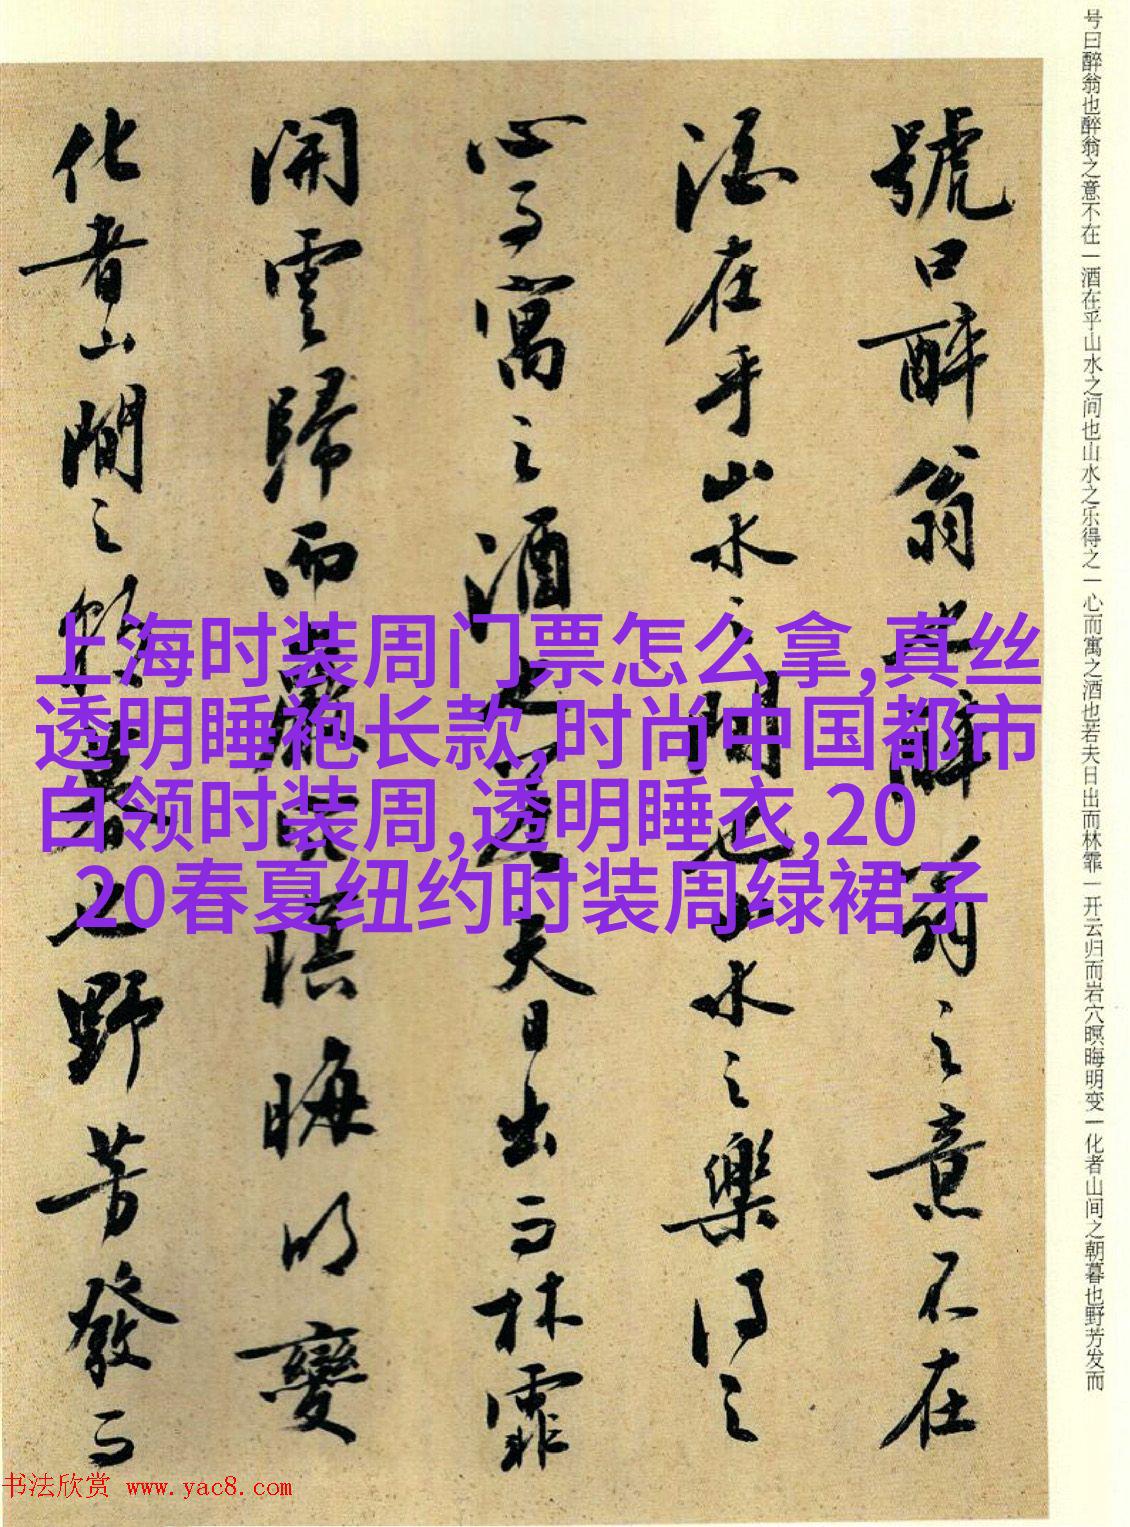 号曰醉翁也醉翁之意不在一酒在乎山水之间也山水之乐得之一心而寓之酒也若夫日出而林霏一开云归而岩穴暝晦明变一化者山间之朝暮也野芳发而
號曰醉翁也醉翁之意不在
酒在乎山水之間也山水之樂得之
心而寓之酒也若夫日出而林霏
開雲歸而巖穴暝晦明變
化者山間之朝暮也野芳發而
上海时装周门票怎么拿,真丝
透明睡袍长款,时尚中国都市
白领时装周,透明睡衣,20
20春夏纽约时装周绿裙子
书法欣赏 www.yac8.com